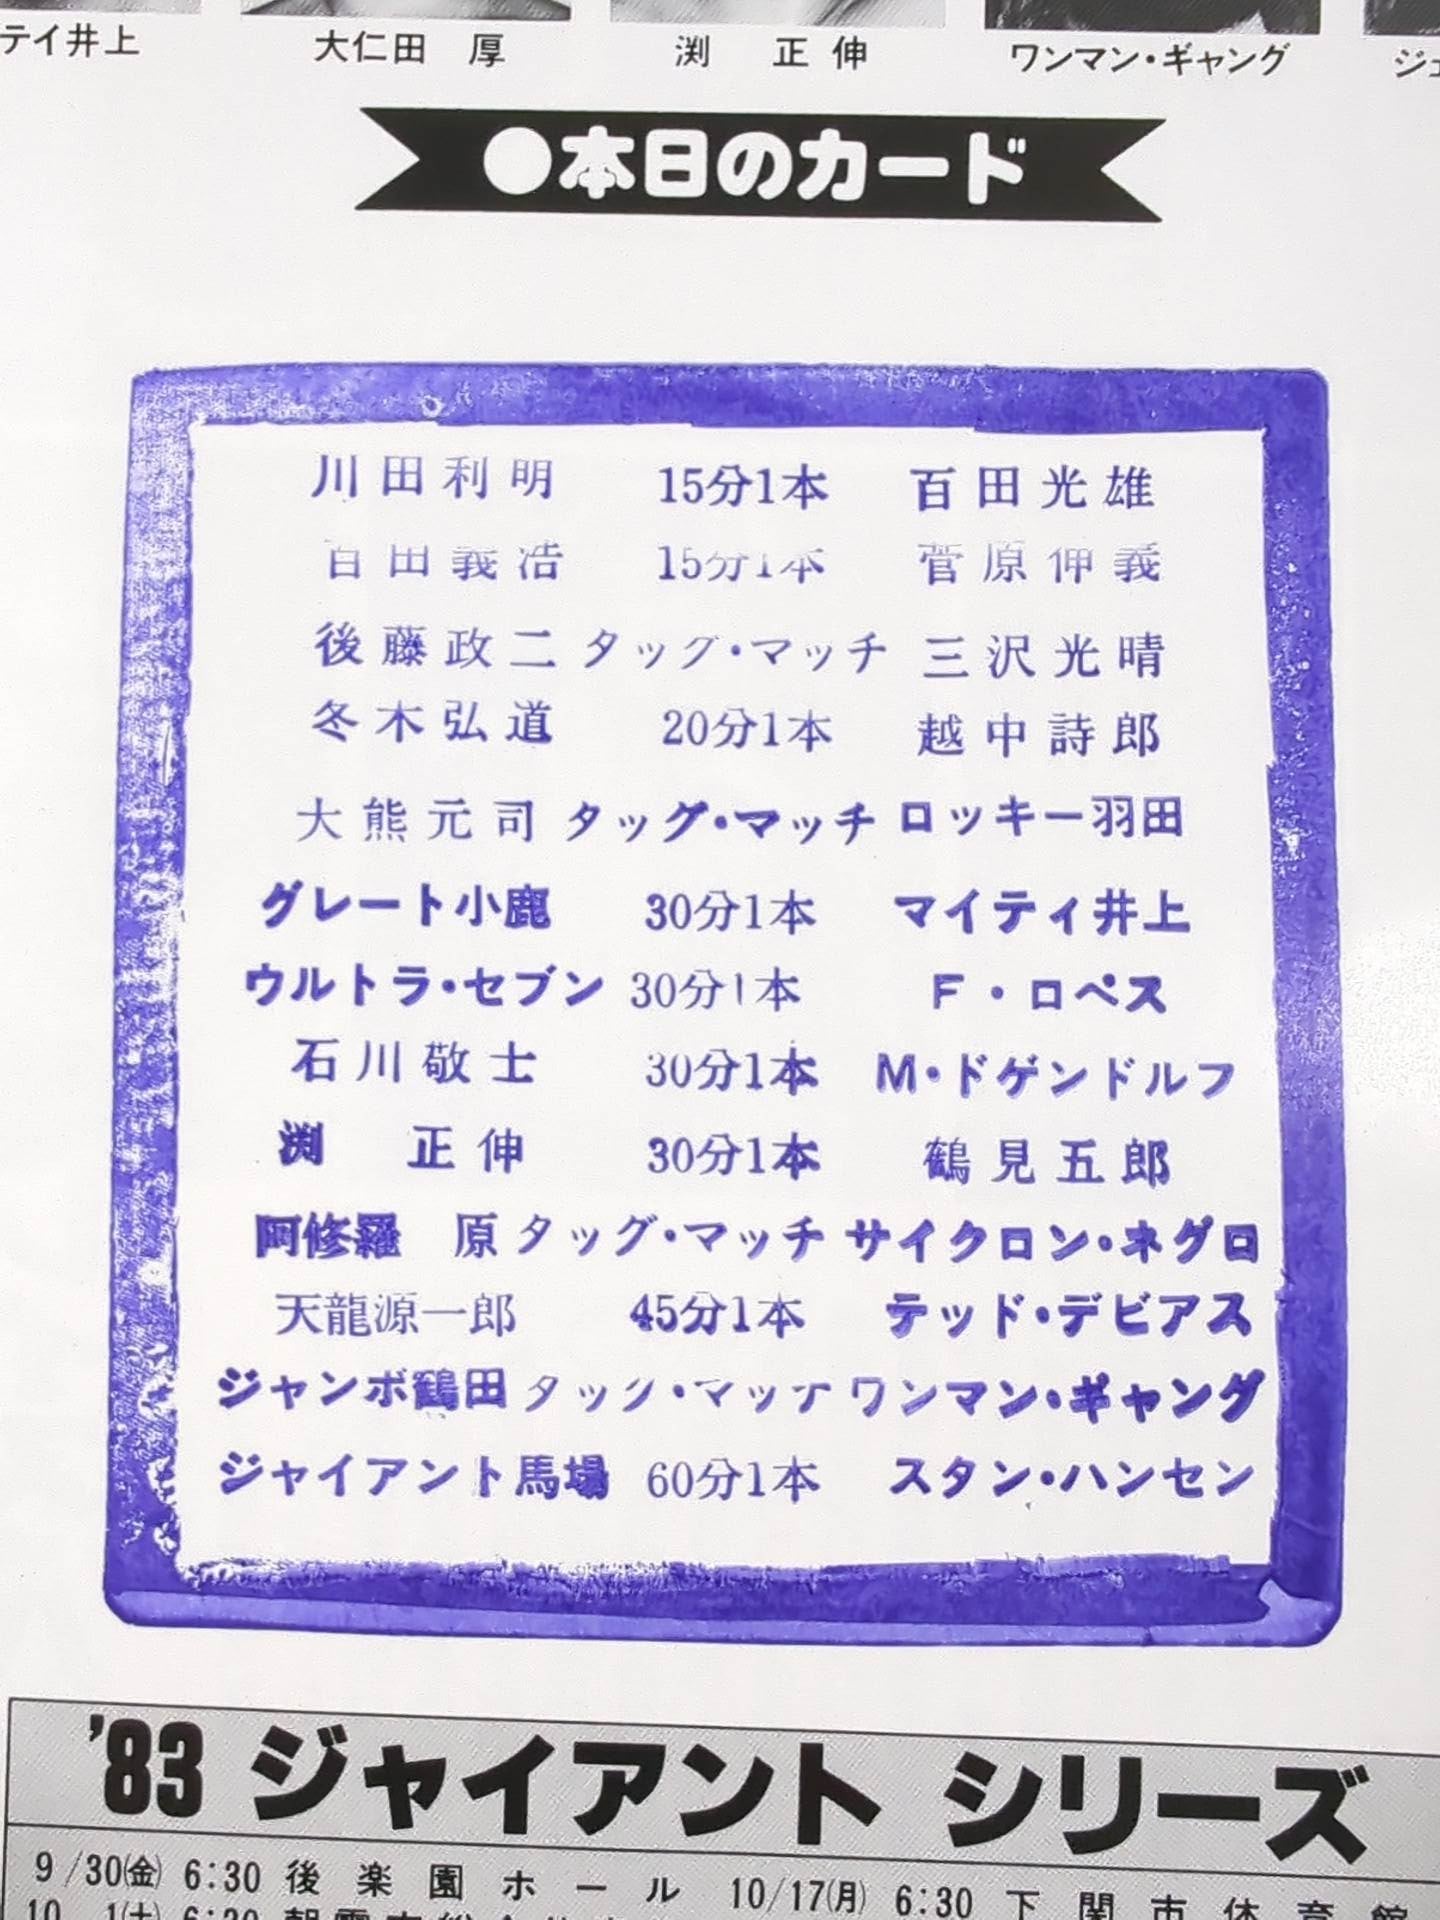 テイ井上 大仁田 厚 渕 正伸 ワンマン・ギャング
●本日のカード
川田利明 15分1本 百田光雄
百田義浩 15分1本 菅原伸義
後藤政二 タッグ・マッチ 三沢光晴
冬木弘道 20分1本 越中詩郎
大熊元司 タッグ・マッチ ロッキー羽田
グレート小鹿 30分1本 マイティ井上
ウルトラ・セブン 30分1本 F・ロペス
石川敬士 30分1本 M・ドゲンドルフ
渕 正伸 30分1本 鶴見五郎
阿修羅 原 タッグ・マッチ サイクロン・ネグロ
天龍源一郎 45分1本 テッド・デビアス
ジャンボ鶴田 タッグ・マッチ ワンマン・ギャング
ジャイアント馬場 60分1本 スタン・ハンセン
'83 ジャイアント シリーズ
9/30(金) 6:30 後楽園ホール 10/17(月) 6:30 下関市体育館